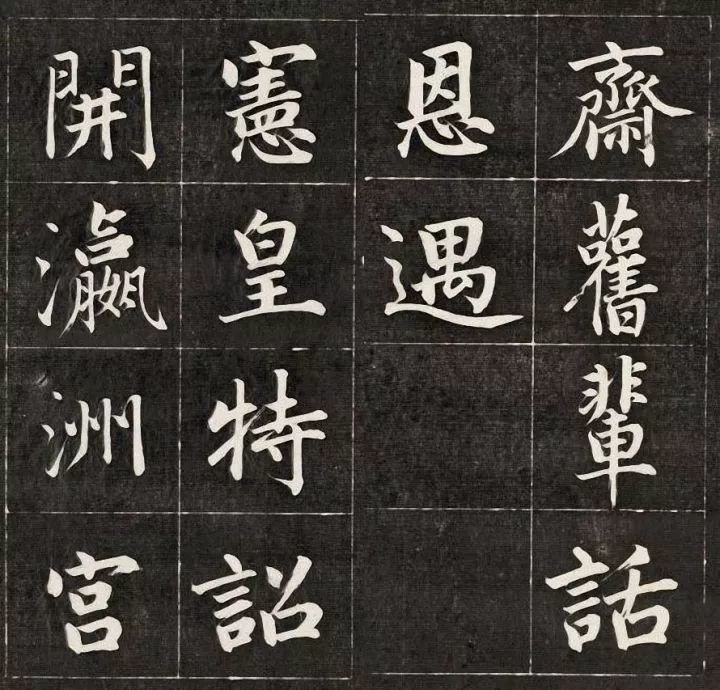 齋舊輩話
恩遇
憲皇特詔
開瀛洲宮